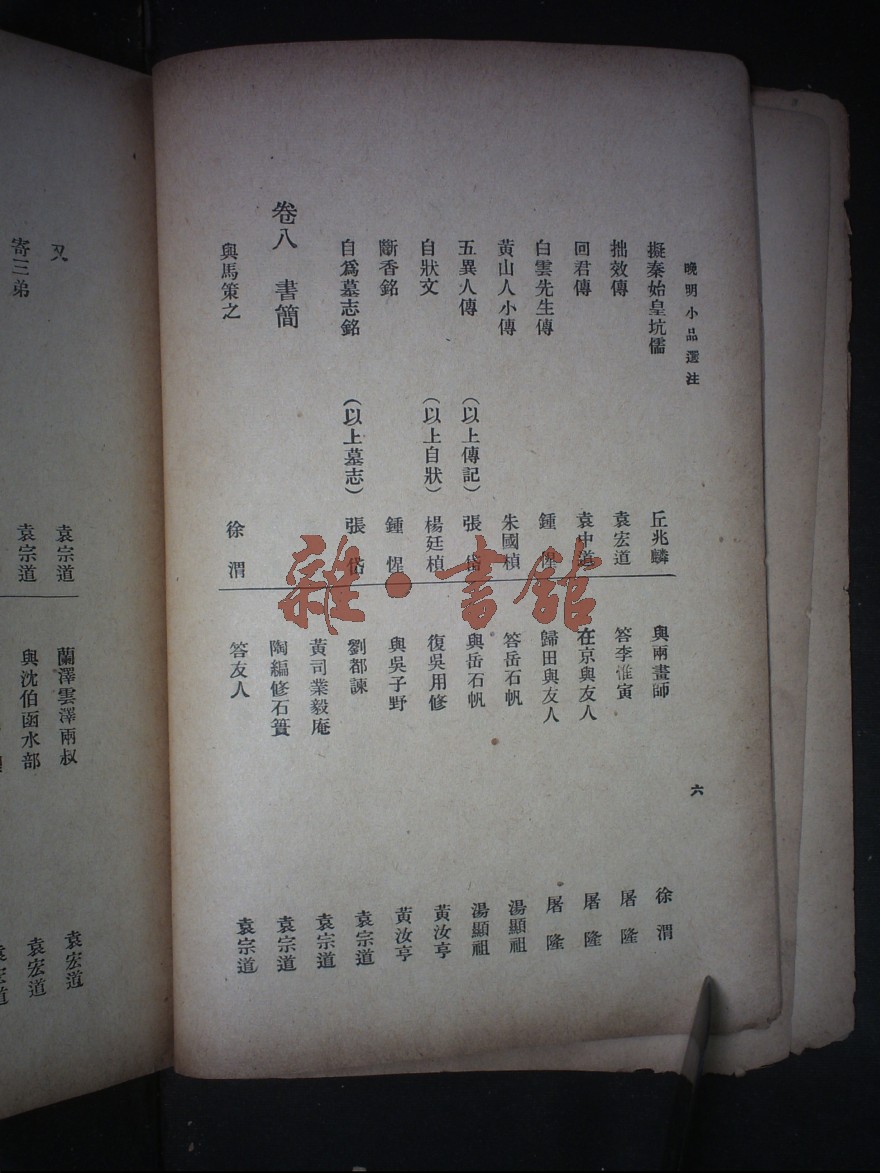 晚明小品選注
六
擬秦始皇坑儒 丘兆麟
拙效傳 袁宏道
回君傳 袁中道
白雲先生傳 鍾惺
黃山人小傳 朱國楨
五異人傳 (以上傳記) 張岱
自狀文 (以上自狀) 楊廷楨
斷香銘 鍾惺
自爲墓志銘 (以上墓志) 張岱
卷八 書簡
與馬策之 徐渭
與兩畫師 徐渭
答李惟寅 屠隆
在京與友人 屠隆
歸田與友人 屠隆
答岳石帆 湯顯祖
與岳石帆 湯顯祖
復吳用修 黃汝亨
與吳子野 黃汝亨
劉都諫 袁宗道
黃司業毅庵 袁宗道
陶編修石簣 袁宗道
答友人 袁宗道
又 袁宗道
寄三弟 袁宗道
蘭澤雲澤兩叔 袁宏道
與沈伯函水部 袁宏道
雜·書館